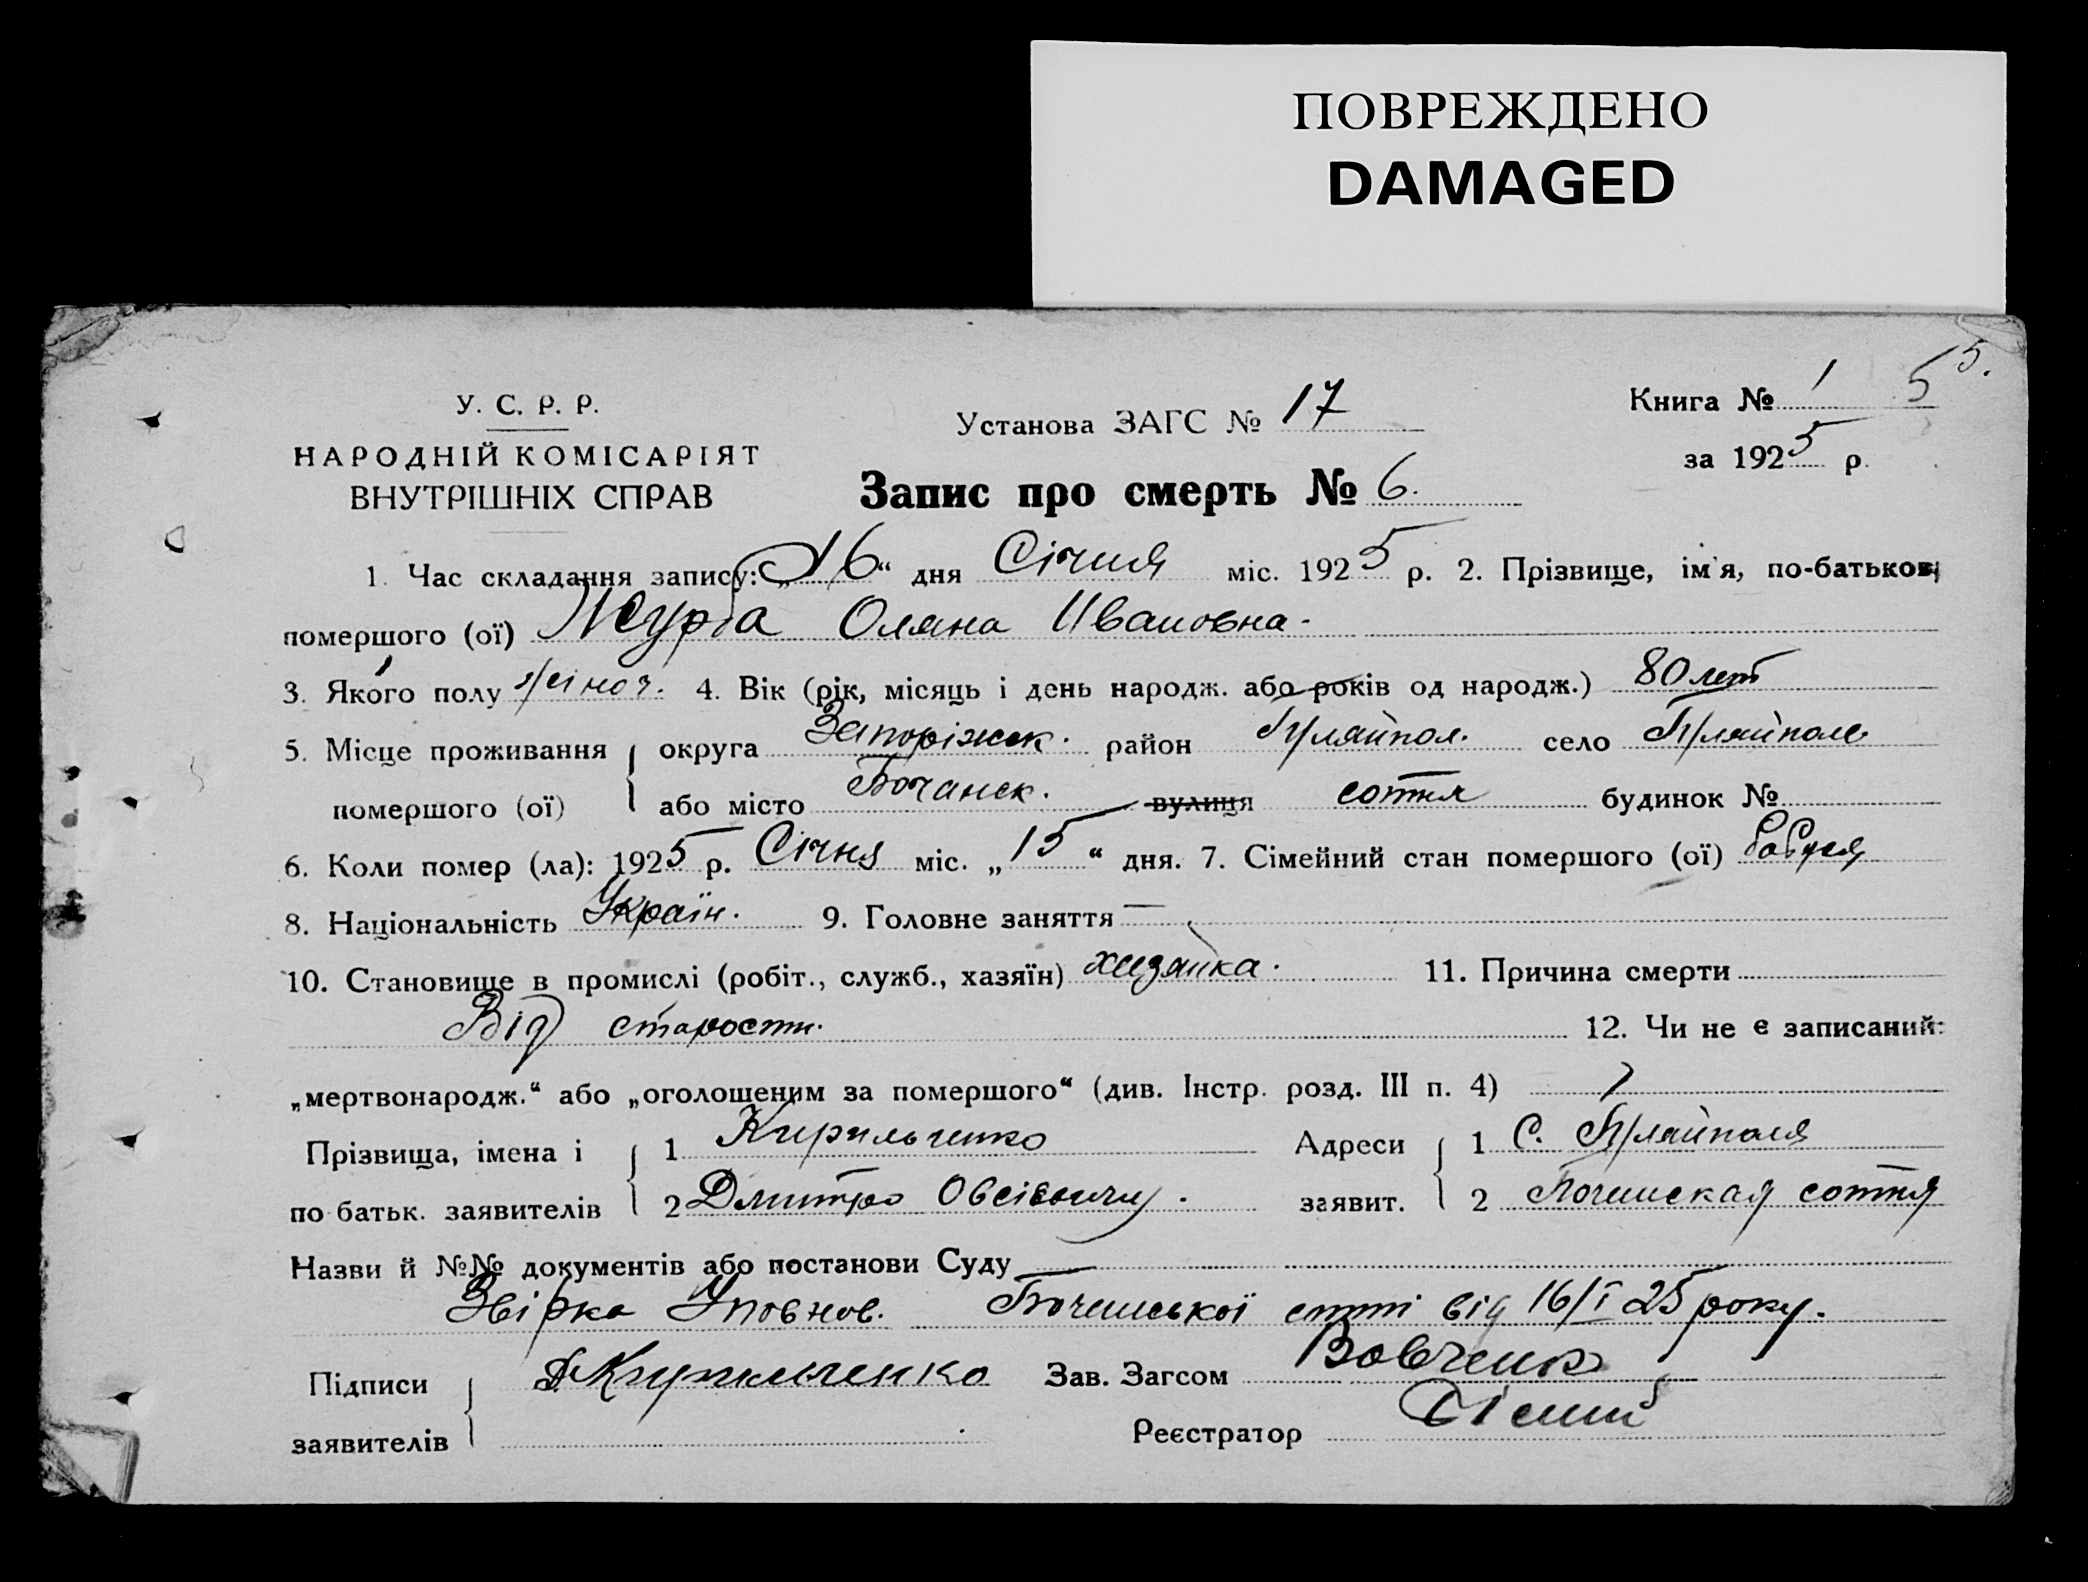 ПОВРЕЖДЕНО
DAMAGED
У. С. Р. Р.
НАРОДНІЙ КОМІСАРІЯТ
ВНУТРІШНІХ СПРАВ
Установа ЗАГС № 17
Книга № 1 5 5.
за 1925 р.
Запис про смерть № 6.
1. Час складання запису: „16“ дня Січня міс. 1925 р. 2. Прізвище, ім'я, по-батьков;
помершого (ої) Журба Оляна Ивановна.
3. Якого полу жіноч. 4. Вік (рік, місяць і день народж. або років од народж.) 80 лет
5. Місце проживання помершого (ої) округа Запоріжск. район Гуляйпол. село Гуляйполе
або місто вулиця сотня будинок №
6. Коли помер (ла): 1925 р. Січня міс. „15“ дня. 7. Сімейний стан помершого (ої)
8. Національність Україн. 9. Головне заняття —
10. Становище в промислі (робіт., служб., хазяїн) хазяйка. 11. Причина смерти
Від старости. 12. Чи не є записаний:
„мертвонародж.“ або „оголошеним за помершого“ (див. Інстр. розд. III п. 4)
Прізвища, імена і по батьк. заявителів 1 Кирильченко Адреси заявит. 1 С. Гуляйполя
2 Дмитро Овсієвич. 2 сотня
Назви й №№ документів або постанови Суду
Уповнов. сотні від 16/I 25 року.
Підписи заявителів Д Кирильченко Зав. Загсом Вовченко
Реєстратор